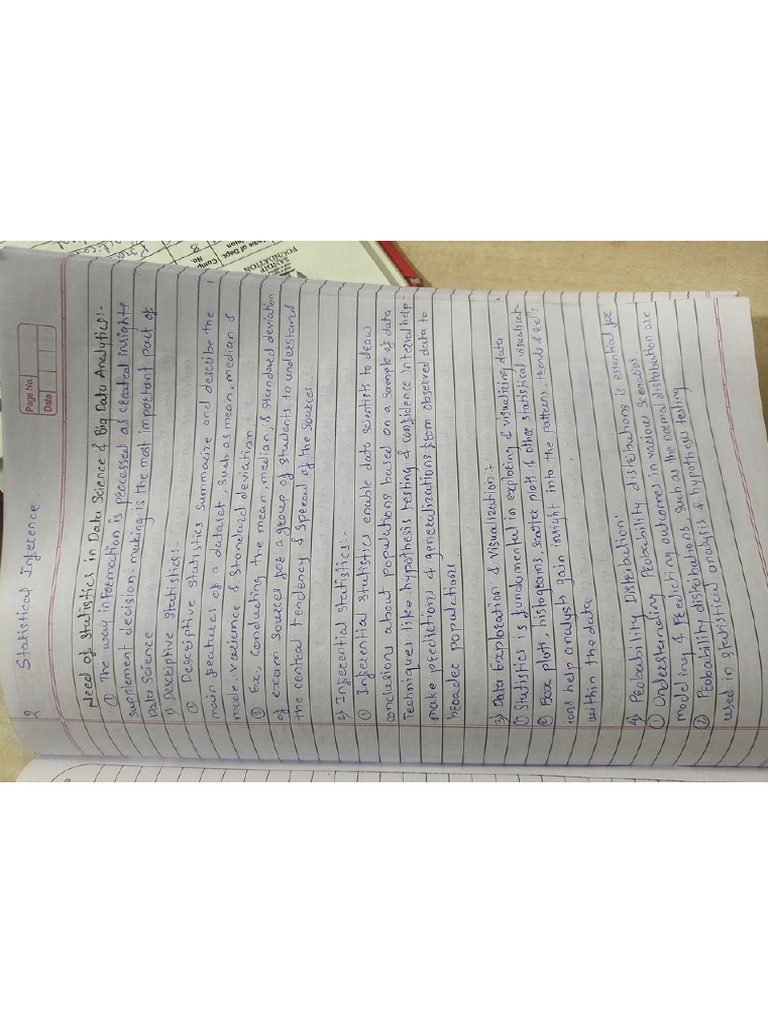 Page No.
Date
2 Statistical Inference
Need of Statistics in Data Science & Big Data Analytics:-
① The way information is processed as created insights
supplement decision-making is the most important part of
Data Science
1) Descriptive Statistics:-
① Descriptive Statistics summarize and describe the
main features of a dataset, such as mean, median &
mode, variance & Standard deviation
② Ex., conducting the mean, median, & standard deviation
of exam sources for a group of students to understand
the central tendency & spread of the sources
2) Inferential Statistics:-
① Inferential Statistics enable data scientists to draw
conclusions about populations based on a sample of data
Techniques like hypothesis testing & confidence interval help
make predictions & generalizations from observed data to
broader populations
3) Data Exploration & Visualization:-
① Statistics is fundamental in exploring & visualizing data
② Box plots, histograms, scatter plots & other statistical visualizati-
ons help analysts gain insight into the patterns, trends &
within the data
4) Probability Distribution:
① Understanding Probability distributions is essential for
modeling & predicting outcomes in various scenarios
② Probability distributions such as the normal distribution are
used in statistical analysis & hypothesis testing
SANDIP
FOUNDATION
Name of Dept.
8